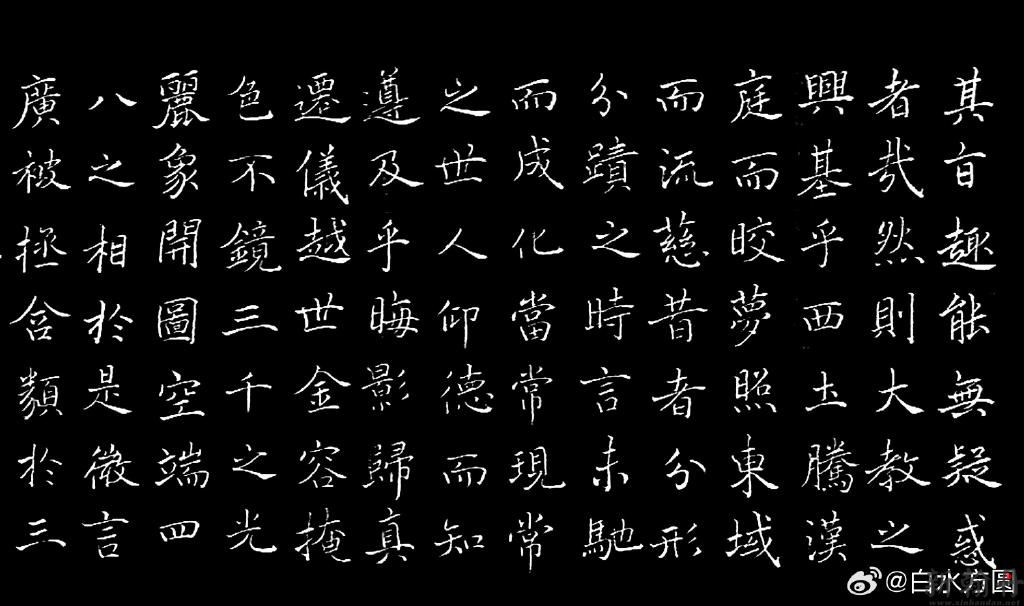 其旨趣能無疑惑
者哉然則大教之
興基乎西土騰漢
庭而皎夢照東域
而流慈昔者分形
分蹟之時言未馳
而成化當常現常
之世人仰德而知
遵及乎晦影歸真
遷儀越世金容掩
色不鏡三千之光
麗象開圖空端四
八之相於是微言
廣被拯含類於三
@白水方圆